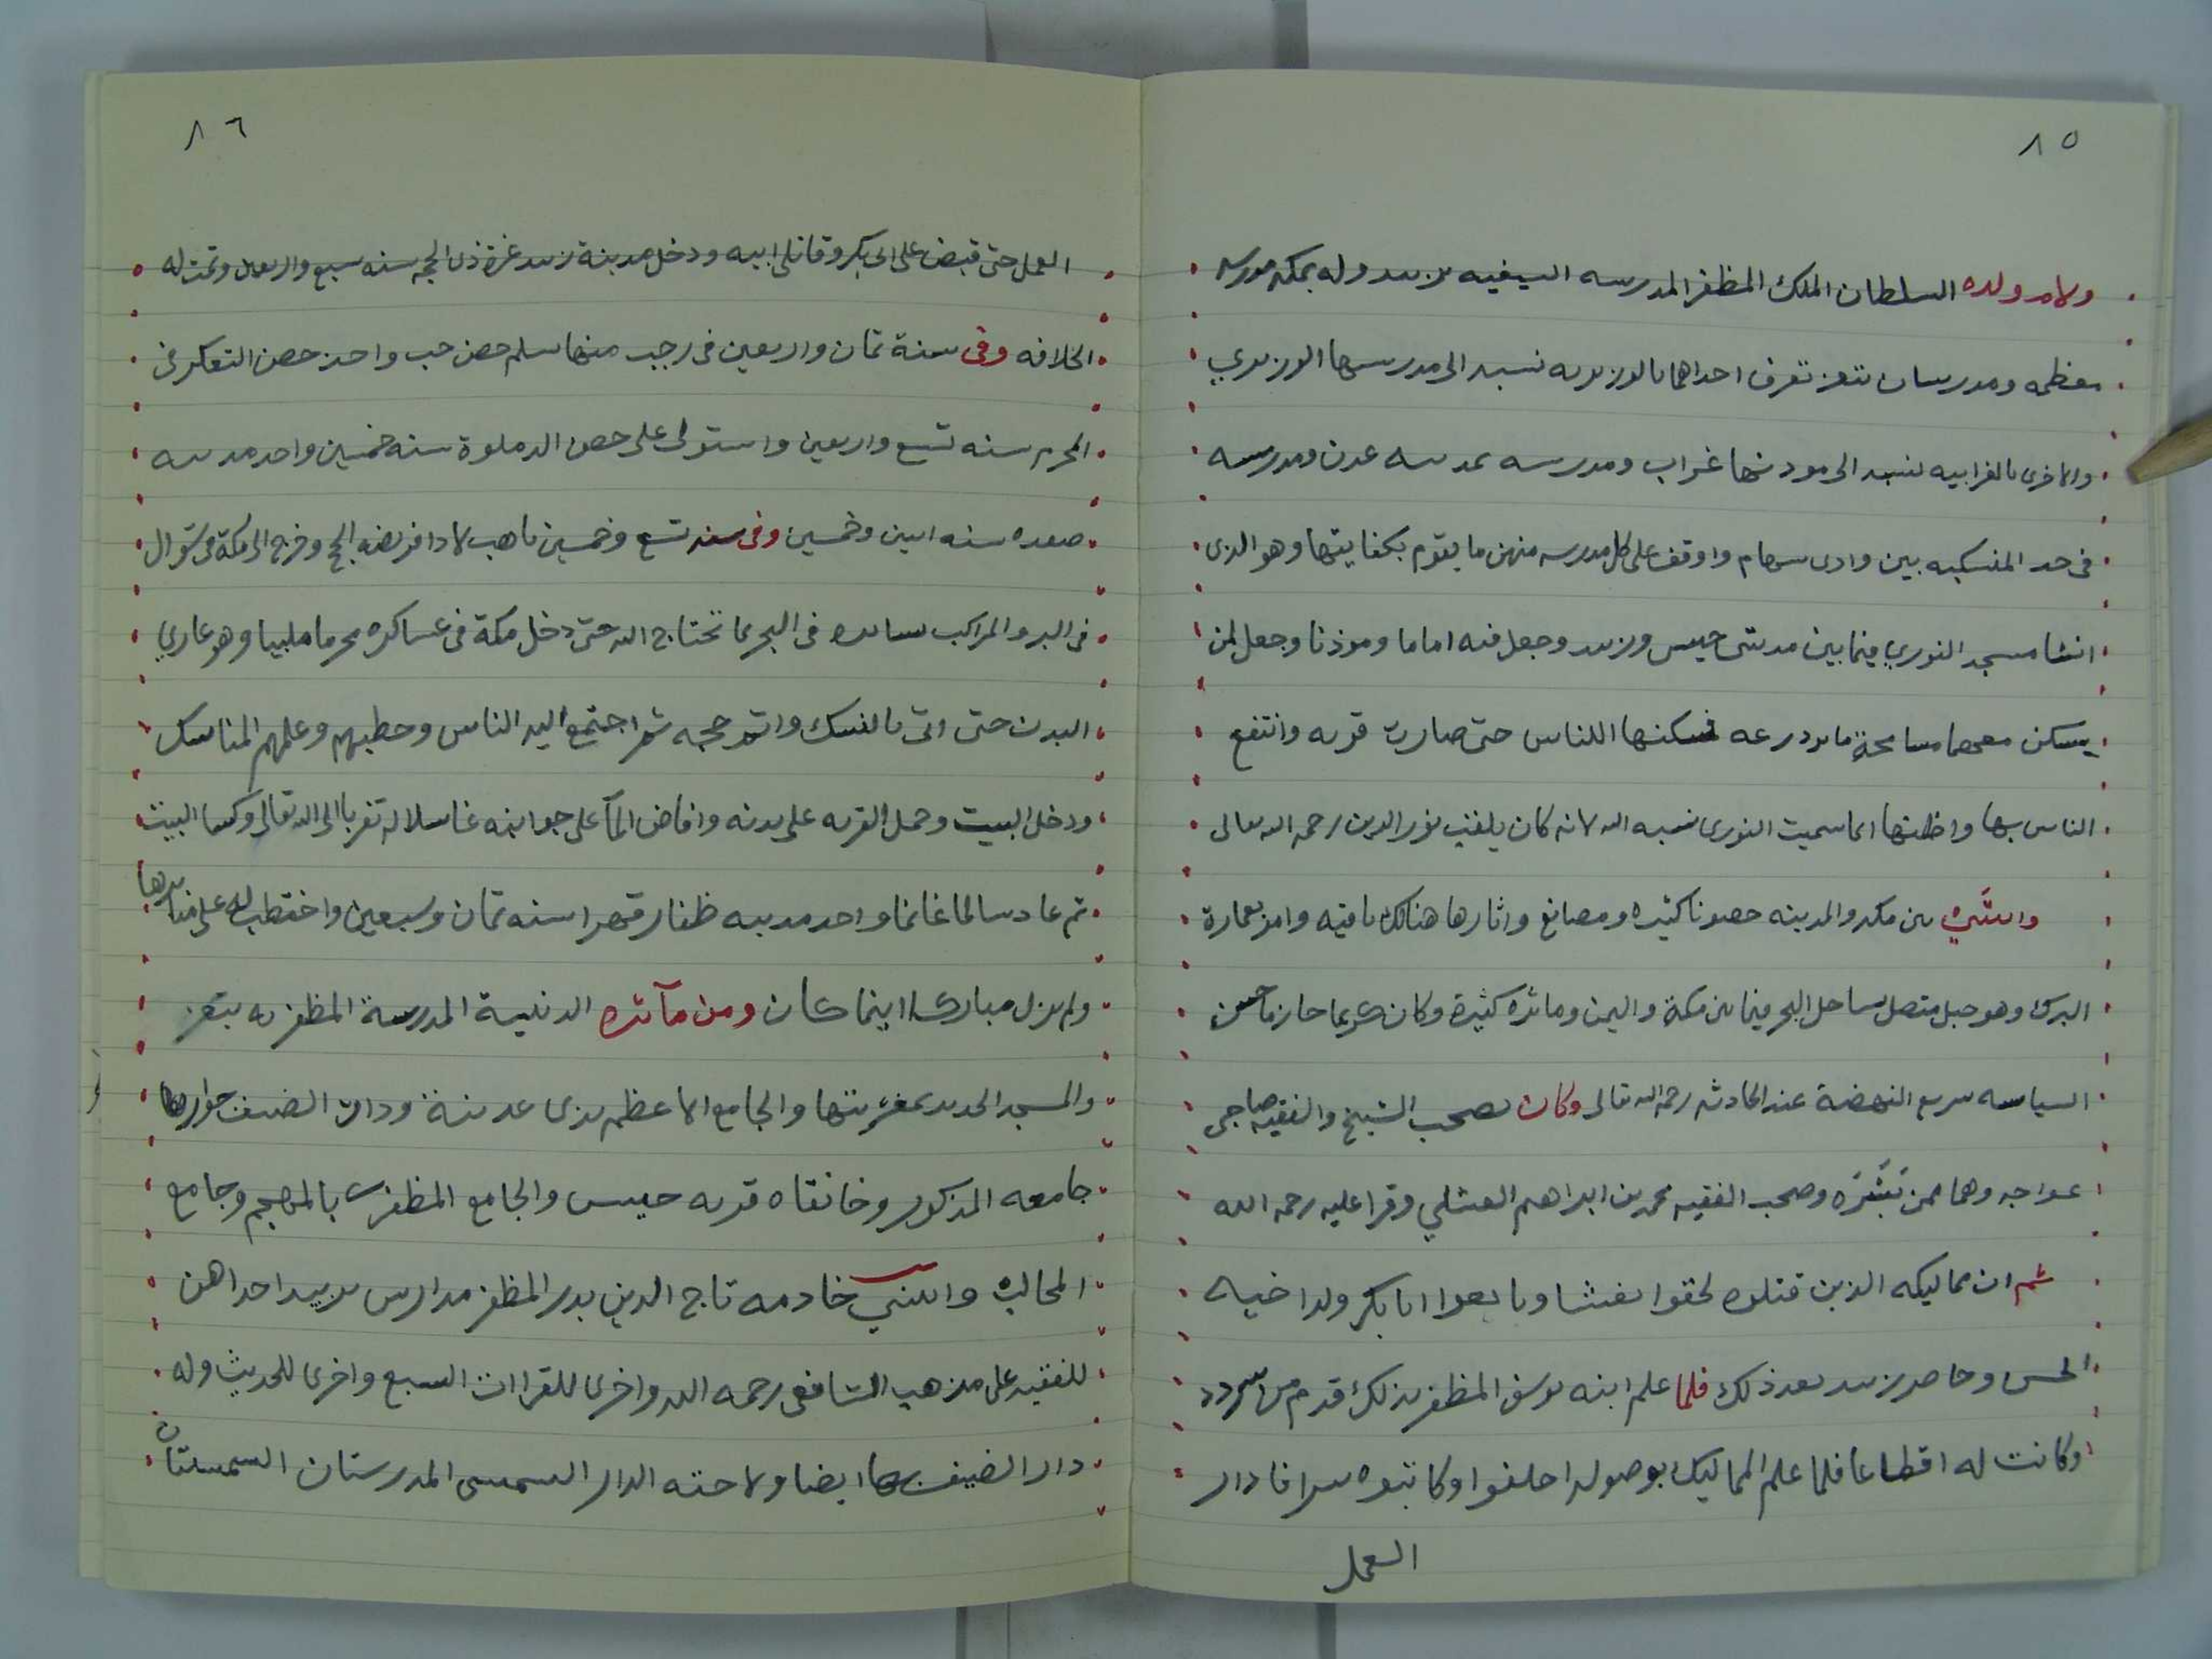 ٨٥
ولام ولده السلطان الملك المظفر المدرسه السيفيه بزبيد وله بمكه مدرسه
معظمه ومدرستان بتعز تعرف احداهما بالوزيريه نسبه الى مدرسها الوزيري
والاخرى بالغرابيه نسبه الى موذنها غراب ومدرسه بمدينه عدن ومدرسه
فى حد المنسكيه بين وادى سهام واوقف على كل مدرسه منهن ما يقوم بكفايتها وهو الذى
انشا مسجد النوري فيما بين مدينتى حيس وزبيد وجعل فيه اماما وموذنا وجعل لمن
يسكن معهما مسامحة ما يزدرعه فسكنها اللناس حتى صارت قريه وانتفع
الناس بها واظنها انما سميت النورى نسبه اليه لانه كان يلقب نور الدين رحمه الله تعالى
وابتنى بين مكه والمدينه حصونا كثيره ومصانع واثارها هنالك باقيه وامر بعمارة
البرك وهو جبل متصل بساحل البحر فيما بين مكة واليمن وماثره كثيرة وكان كريما حازما حسن
السياسه سريع النهضة عند الحادثه رحمه الله تعالى وكان يصحب الشيخ والفقيه صاحبى
عواجه وهما ممن بَشَّرَه وصحب الفقيه محمد بن ابراهيم الفشلي وقرا عليه رحمه الله
ثم ان مماليكه الذين قتلوه لحقوا بفشال وبايعوا ابا بكر ولد اخيه
الحسن وحاصر زبيد بعد ذلك فلما علم ابنه يوسف المظفر بذلك قدم من سردد
وكانت له اقطاعا فلما علم المماليك بوصوله احلفوا وكاتبوه سرا فادار
العمل
٨٦
العمل حتى قبض على ابى بكر وقاتلى ابيه ودخل مدينة زبيد غرة ذى الحجه سنه سبع واربعين وتمت له
الخلافه وفى سنة ثمان واربعين فى رجب منها سلم حصن حب واخذ حصن التعكر فى
المحرم سنه تسع واربعين واستولى على حصن الدملوة سنه خمسين واخذ مدينه
صعده سنه اثنين وخمسين وفى سنه تسع وخمسين تاهب لادا فريضه الحج وخرج الى مكة فى شوال
فى البر والمراكب تسايره فى البحر بما تحتاج اليه حتى دخل مكة فى عساكره محرما ملبيا وهو عاري
البدن حتى اتى بالنسك واتم حجه ثم اجتمع اليه الناس وخطبهم وعلمهم المناسك
ودخل البيت وحمل القربه على بدنه وافاض المآ على جوانبه غاسلا له تقربا الى الله تعالى وكسا البيت
ثم عاد سالما غانما واخذ مدينه ظفار قهرا سنه ثمان وسبعين واختطب له على منابرها
ولم يزل مباركا اينما كان ومن مآثره الدنيية المدرسة المظفريه بتعز
والمسجد الجديد بمغربتها والجامع الاعظم بذى عدينة ودار الضيف جوارها
جامعه المذكور وخانقاه قريه حيس والجامع المظفرى بالمهجم وجامع
المحالب وابتنى خادمه تاج الدين بدر المظفر مدارس بزبيد احداهن
للفقيه على مذهب الشافعى رحمه الله واخرى للقراات السبع واخرى للحديث وله
دار الضيف بها ايضا ولاخته الدار الشمسى المدرستان الشمسيتان